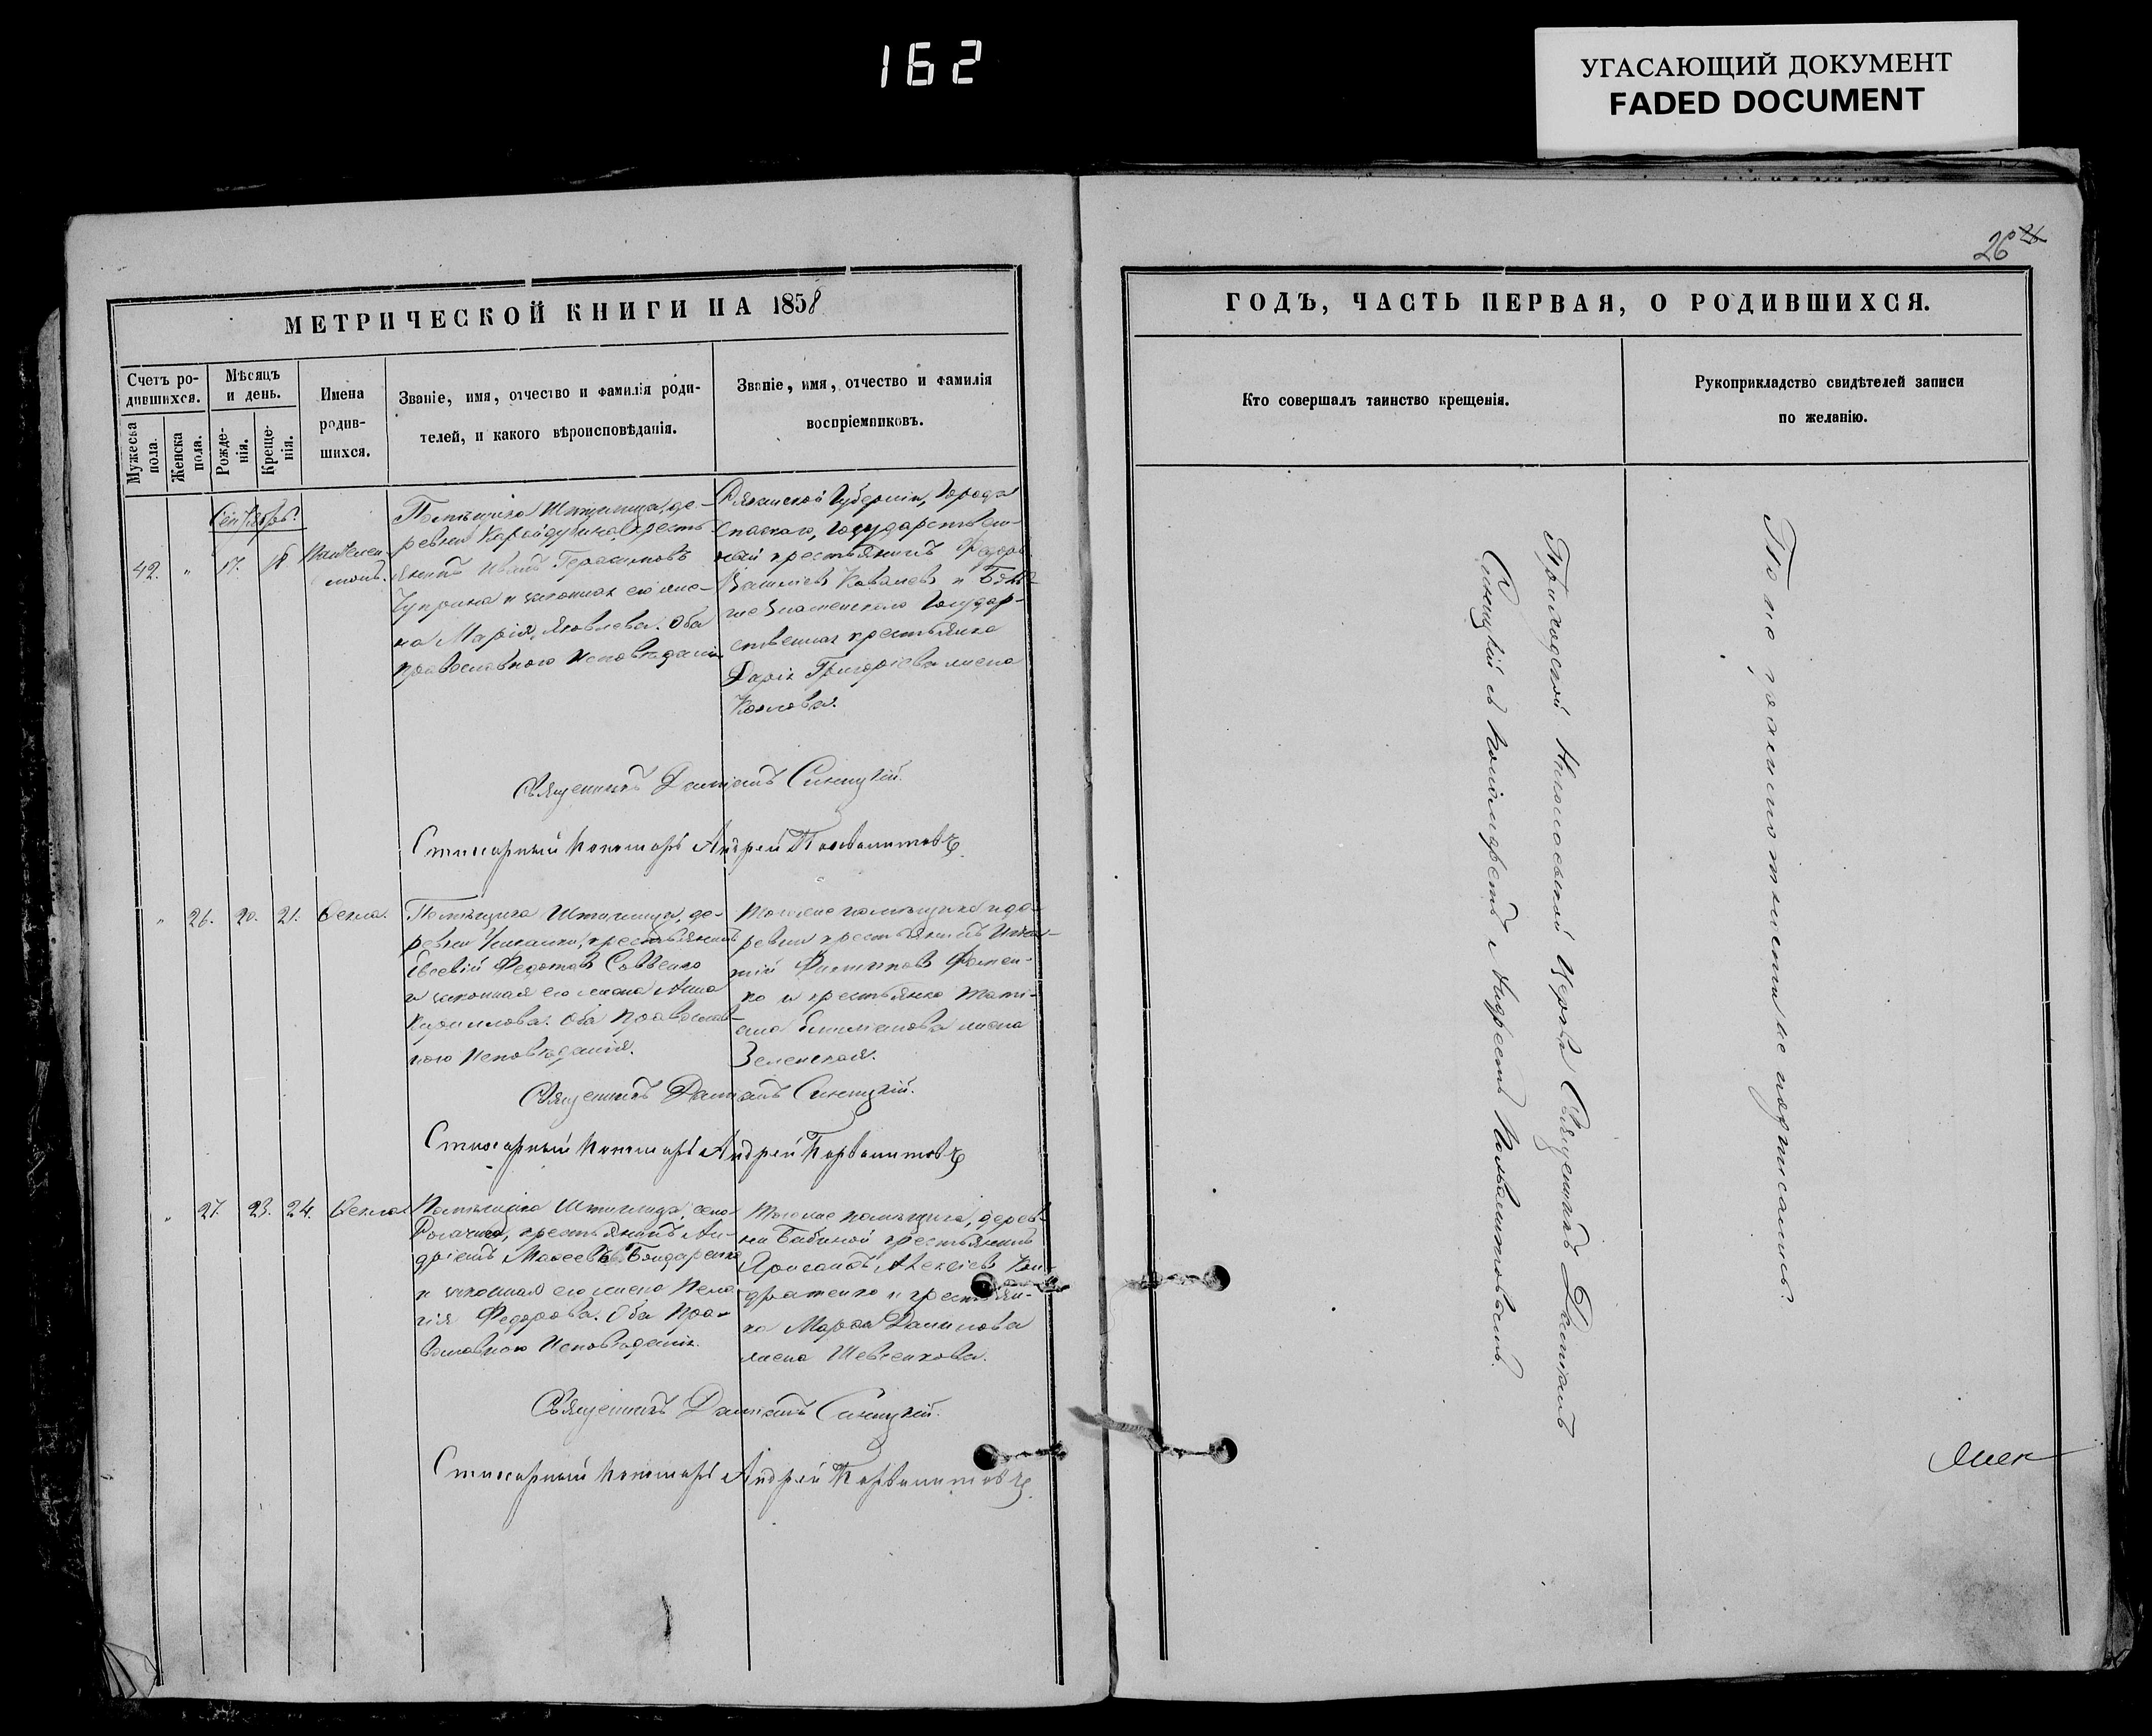 162
УГАСАЮЩИЙ ДОКУМЕНТ
FADED DOCUMENT
26 26
МЕТРИЧЕСКОЙ КНИГИ НА 1858
Счетъ ро-
дившихся.
Мужеска
пола.
Женска
пола.
Мѣсяцъ
и день.
Рожде-
нія.
Креще-
нія.
Имена
родив-
шихся.
Званіе, имя, отчество и фамилія роди-
телей, и какого вѣроисповѣданія.
Званіе, имя, отчество и фамилія
воспріемниковъ.
Сентябрь.
42. " 17.
Помѣщика Штиглица, де-
ревни кресть
янинъ Иванъ Герасимовъ
Чуприна и законная его же-
на Марія Яковлева. Оба
православнаго исповѣданія
Губерніи, города
Спаскаго, государствен-
ный крестьянинъ Федоръ
Василіевъ Ковалевъ и
Знаменскаго государ-
ственная крестьянка
Дарія Григоріева жена
Козлова.
Священникъ Даміанъ Синицкій.
Стихарный пономарь Андрей
" 26. 20. 21. Ѳекла.
Помѣщика Штиглица, де-
ревни крестьянинъ
Евсевій Федотовъ Савченко
и законная его жена Анна
Кириллова. Оба православ-
наго исповѣданія.
Тогоже помѣщика и де-
ревни крестьянинъ Игна-
тій Филиповъ Фомен-
ко и крестьянка Тати-
ана жена
Зеленская.
Священникъ Даміанъ Синицкій.
Стихарный пономарь Андрей
" 27. 23. 24. Ѳекла
Помѣщика Штиглица, села
Рогачика, крестьянинъ Ан-
дріанъ Моисеевъ Бондаренко
и законная его жена Пела-
гія Федорова. Оба пра-
вославнаго исповѣданія.
Тогоже помѣщика, дерев-
ни Бабиной крестьянинъ
Алексіевъ Кон-
дратенко и крестьян-
ка Марѳа Данилова
жена Шевченкова.
Священникъ Даміанъ Синицкій.
Стихарный пономарь Андрей
ГОДЪ, ЧАСТЬ ПЕРВАЯ, О РОДИВШИХСЯ.
Кто совершалъ таинство крещенія.
Рукоприкладство свидѣтелей записи
по желанію.
Приходской Николаевской Церкви Священникъ Даміанъ
Синицкій съ пономаремъ Андреемъ
По не грамотности не подписались.